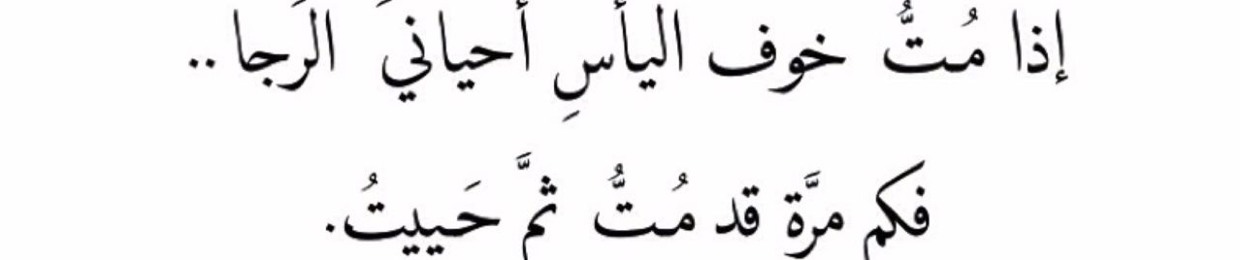 إذا مُتُّ خوف اليأسِ أحيانيَ الرَجا..
فكم مرَّة قد مُتُّ ثمَّ حَييتُ.